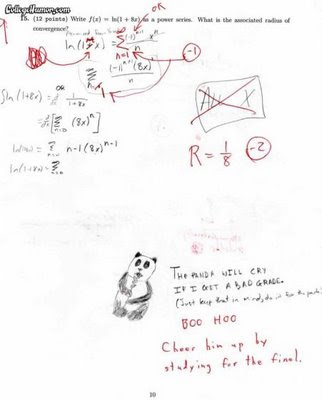 CollegeHumor.com
15. (12 points) Write f(x) = ln(1 + 8x) as a power series. What is the associated radius of
convergence?
OK
ln(1+x) = ∑ (-1)^{n+1} x^n / n
n=1
-1
∑ (-1)^{n+1} (8x)^n / n
OR
ln(1+8x) =
1/(1+8x)
[∑ (8x)^n]
n=0
∑ n-1 (8x)^{n+1}
ln(1+8x) = ∑
R = 1/8
-2
THE PANDA WILL CRY
IF I GET A BAD GRADE.
(Just keep that in mind, do it for the panda)
BOO HOO
Cheer him up by
studying for the final.
10